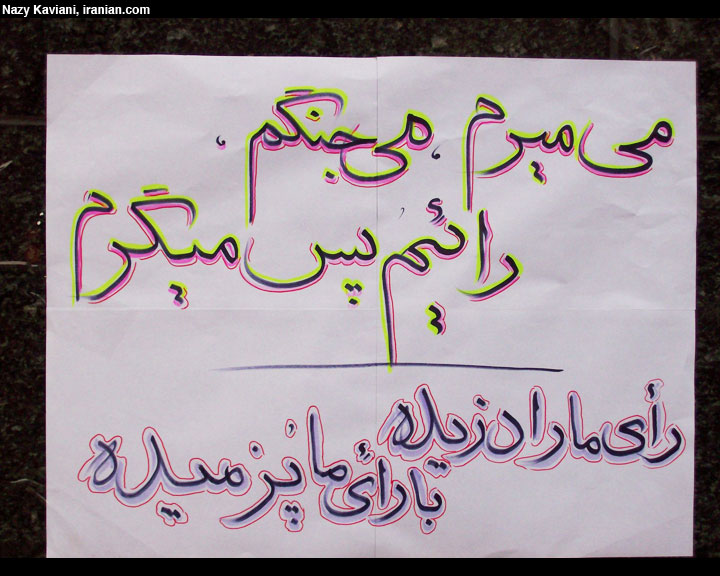 Nazy Kaviani, iranian.com
می میرم، می جنگم،
رائیم پس میگرم
رأی ما را دزیده
با رائی ما پُز میده